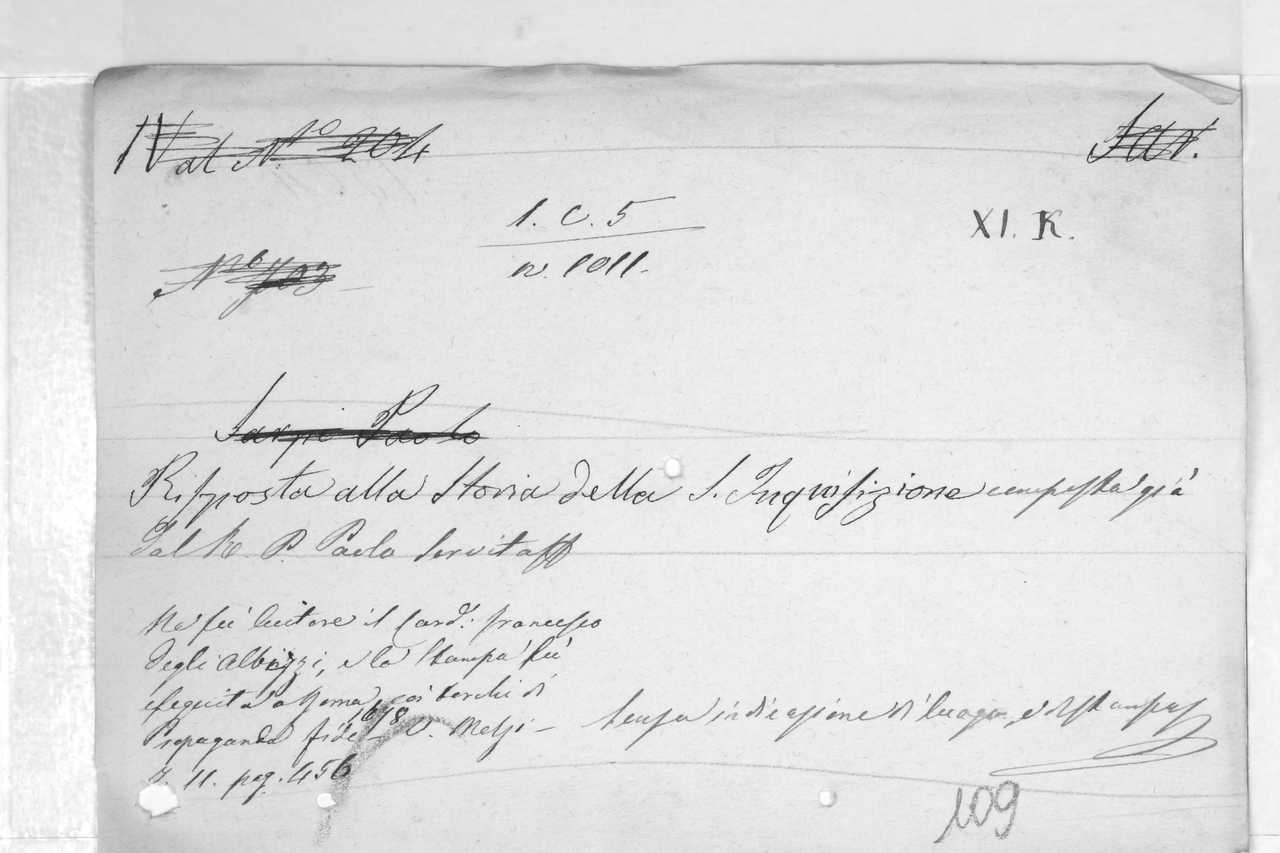 IV al N.º 204
Sar.
1. C. 5
n. 1011.
XI. K.
N.º 703
Sarpi Paolo
Risposta alla Storia della S. Inquisizione composta già
dal R. P. Paolo Servita
Ne fù autore il Card. Francesco
degli Albizzi, e la Stampa fù
eseguita a Roma coi torchi di
Propaganda fide 1678 V. Melzi – senza indicazione di luogo, e di Stampa
T. 11. pag. 456
109